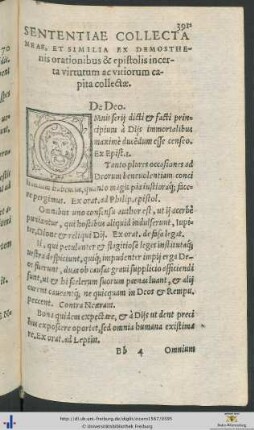 391
SENTENTIAE COLLECTA
NEAE, ET SIMILIA EX DEMOSTHE-
nis orationibus & epistolis incer-
ta virtutum ac vitiorum ca-
pita collectæ.
De Deo.
OMnis serij dicti & facti prin-
cipium à Dijs immortalibus
maximè ducēdum esse censeo.
Ex Epist. 1.
Tanto plures occasiones ad
Deorum beneuolentiam conci
quanto magis pia iustaq́; face
re pergimus. Ex orat. ad Philip. epistol.
Omnibus uno consensu author est, ut ij acerbè
puniantur, qui hostibus aliquid indulserint, Iupi-
ter, Dione & reliqui Dij. Ex orat. de falsa legat.
Ij, qui petulanter & flagitiose leges institutaq́;
nostra despiciunt, quiq́; impudenter impij erga De-
os fuerunt, duas ob causas graui supplicio officiendi
sunt, ut & hi scelerum suorum pœnas luant, & alij
caueantq́; ne quicquam in Deos & Rempu.
peccent. Contra Neæram.
Bona quidem expectare, & à Dijs ut dent preci
bus exposcere oportet, sed omnia humana existima
re. Ex orat. ad Leptin.
Bb 4 Omnium
http://dl.ub.uni-freiburg.de/diglit/
© Universitätsbibliothek Freiburg